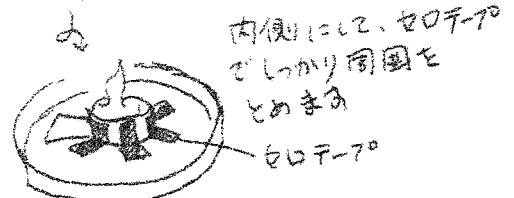 内側にして、セロテープ
でしっかり周囲を
とめます
セロテープ